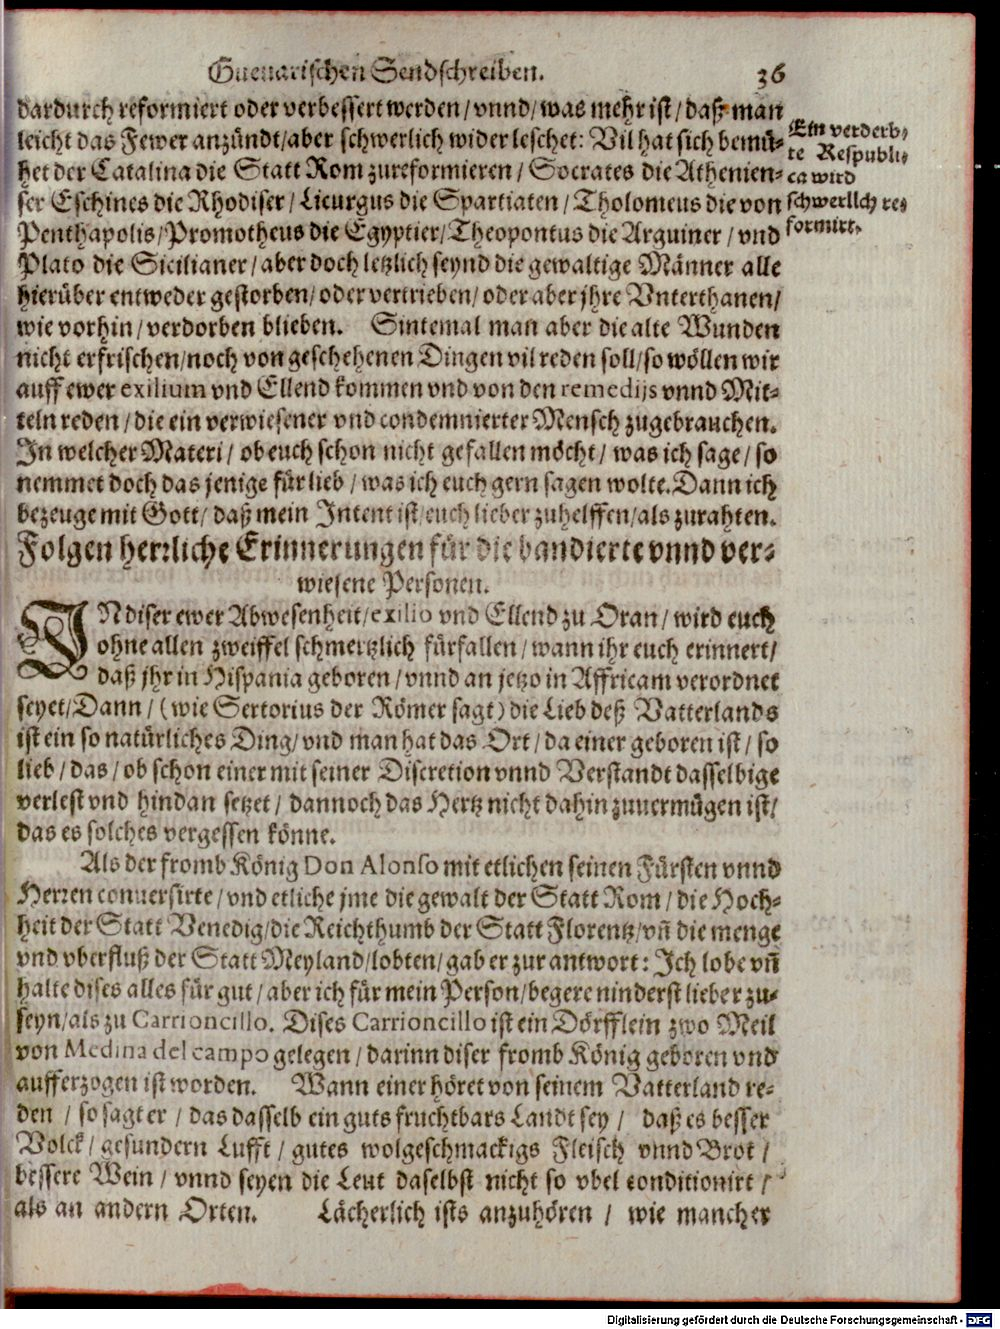 Gueuarischen Sendschreiben. 36
dardurch reformiert oder verbessert werden / vnnd / was mehr ist / daß man
leicht das Fewer anzündt / aber schwerlich wider leschet: Vil hat sich bemü-
het der Catalina die Statt Rom zureformieren / Socrates die Athenien-
ser Eschines die Rhodiser / Licurgus die Spartiaten / Tholomeus die von
Penthapolis / Promotheus die Egyptier / Theopontus die Arguiner / vnd
Plato die Sicilianer / aber doch letzlich seynd die gewaltige Männer alle
hierüber entweder gestorben / oder vertrieben / oder aber jhre Vnterthanen /
wie vorhin / verdorben blieben. Sintemal man aber die alte Wunden
nicht erfrischen / noch von geschehenen Dingen vil reden soll / so wöllen wir
auff ewer exilium vnd Ellend kommen vnd von den remedijs vnnd Mit-
teln reden / die ein verwiesener vnd condemnierter Mensch zugebrauchen.
In welcher Materi / ob euch schon nicht gefallen möcht / was ich sage / so
nemmet doch das jenige für lieb / was ich euch gern sagen wolte. Dann ich
bezeuge mit Gott / daß mein Intent ist / euch lieber zuhelffen / als zurahten.
Ein verderb-
te Respubli-
ca wird
schwerlich re-
formirt.
Folgen herrliche Erinnerungen für die bandierte vnnd ver-
wiesene Personen.
IN diser ewer Abwesenheit / exilio vnd Ellend zu Oran / wird euch
ohne allen zweiffel schmertzlich fürfallen / wann ihr euch erinnert /
daß jhr in Hispania geboren / vnnd an jetzo in Affricam verordnet
seyet / Dann / (wie Sertorius der Römer sagt) die Lieb deß Vatterlands
ist ein so natürliches Ding / vnd man hat das Ort / da einer geboren ist / so
lieb / das / ob schon einer mit seiner Discretion vnnd Verstandt dasselbige
verlest vnd hindan setzet / dannoch das Hertz nicht dahin zuuermügen ist /
das es solches vergessen könne.
Als der fromb König Don Alonso mit etlichen seinen Fürsten vnnd
Herren conuersirte / vnd etliche jme die gewalt der Statt Rom / die Hoch-
heit der Statt Venedig / die Reichthumb der Statt Florentz / vñ die menge
vnd vberfluß der Statt Meyland / lobten / gab er zur antwort: Ich lobe vñ
halte dises alles für gut / aber ich für mein Person / begere ninderst lieber zu-
seyn / als zu Carrioncillo. Dises Carrioncillo ist ein Dörfflein zwo Meil
von Medina del campo gelegen / darinn diser fromb König geboren vnd
aufferzogen ist worden. Wann einer höret von seinem Vatterland re-
den / so sagt er / das dasselb ein guts fruchtbars Landt sey / daß es besser
Volck / gesundern Lufft / gutes wolgeschmackigs Fleisch vnnd Brot /
bessere Wein / vnnd seyen die Leut daselbst nicht so vbel conditionirt /
als an andern Orten. Lächerlich ists anzuhören / wie mancher
Digitalisierung gefördert durch die Deutsche Forschungsgemeinschaft - DFG